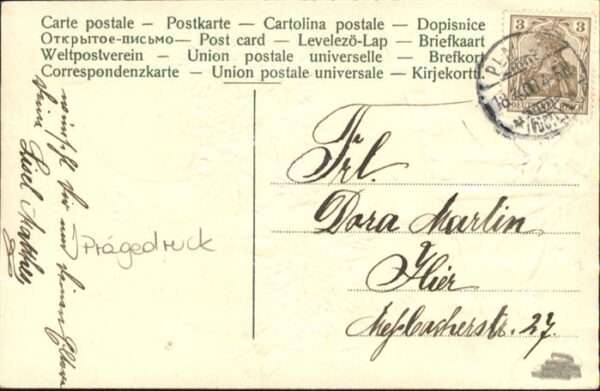 Carte postale – Postkarte – Cartolina postale – Dopisnice
Открытое-письмо – Post card – Levelező-Lap – Briefkaart
Weltpostverein – Union postale universelle – Brefkort
Correspondenzkarte – Union postale universale – Kirjekortti
3 3
Frl.
Dora Martin
Hier
27.
wünscht Dir und Deinen Eltern
Deine Liesel
Prägedruck